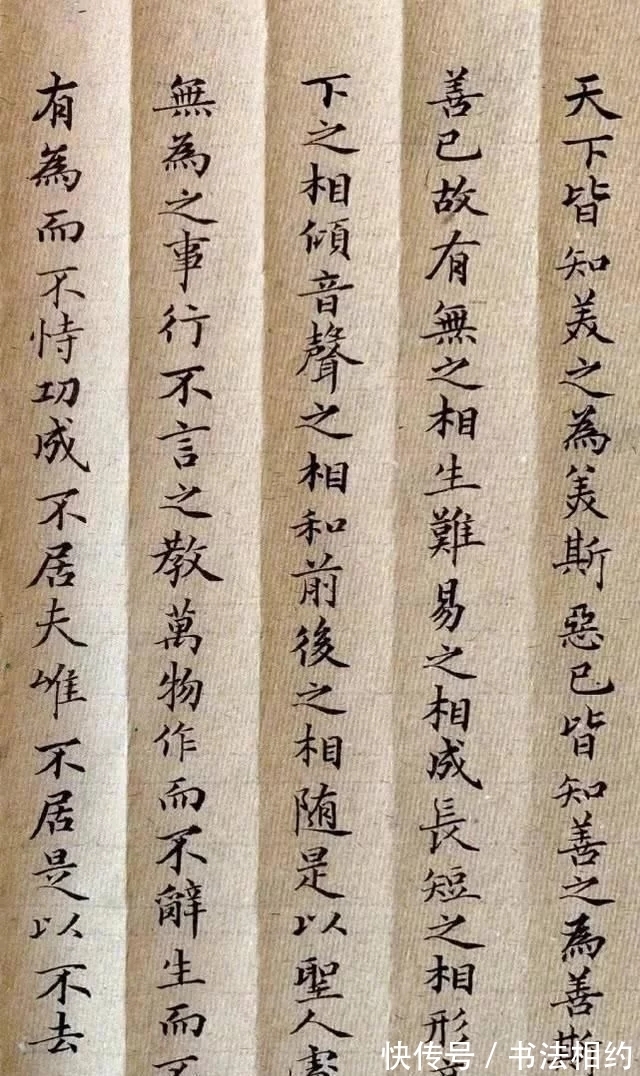 天下皆知美之為美斯惡已皆知善之為善斯
善已故有無之相生難易之相成長短之相形
下之相傾音聲之相和前後之相随是以聖人
無為之事行不言之教萬物作而不辭生而不
有為而不恃功成不居夫唯不居是以不去
快传号／书法相约